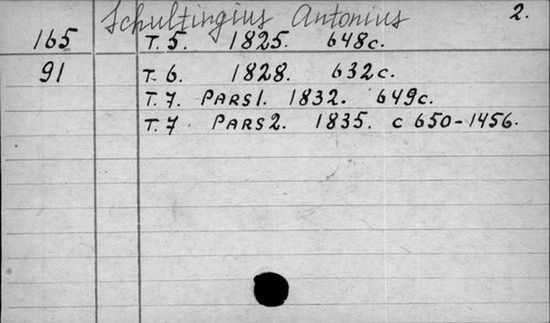 Schultingius Antonius 2.
165 T. 5. 1825. 648c.
91 T. 6. 1828. 632c.
T. 7. PARS 1. 1832. 649c.
T. 7 PARS 2. 1835. c 650-1456.